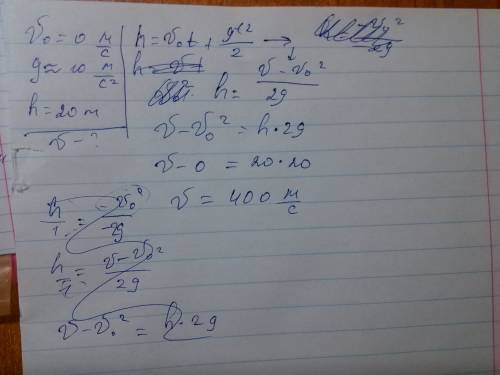 v₀ = 0 м/с
g ≈ 10 м/с²
h = 20 м
v - ?
h = v₀t + gt²/2 →
h = (v - v₀²)/2g
v - v₀² = h · 2g
v - 0 = 20 · 20
v = 400 м/с
h/1 = - v₀²/-2g
h/1 = (v - v₀²)/2g
v - v₀² = h · 2g